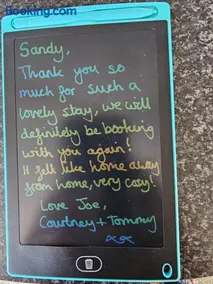 Booking.com
Sandy,
Thank you so
much for such a
lovely stay, we will
definitely be booking
with you again!
It felt like home away
from home, very cosy!
Love Joe,
Courtney + Tommy
xx